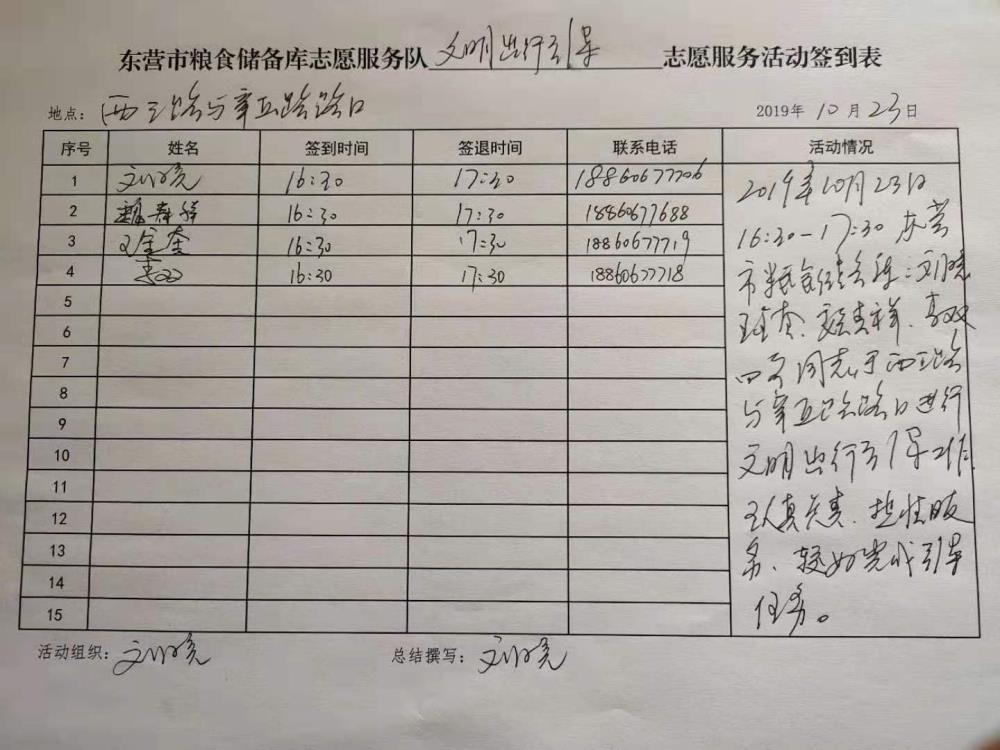 东营市粮食储备库志愿服务队 文明出行引导 志愿服务活动签到表
地点： 西三路与 路路口 2019年 10 月 23 日
序号 姓名 签到时间 签退时间 联系电话 活动情况
1 刘晓 16:30 17:30 18860677706
2 16:30 17:30 18860677688
3 王奎 16:30 17:30 18860677719
4 高双 16:30 17:30 18860677718
5
6
7
8
9
10
11
12
13
14
15
2019年10月23日
16:30-17:30 东营
市粮食储备库：刘晓
祥、高双
四名同志于西三路
与 路路口进行
文明出行引导工作
认真负责、热性服
务、较好完成引导
任务。
活动组织： 刘晓 总结撰写： 刘晓